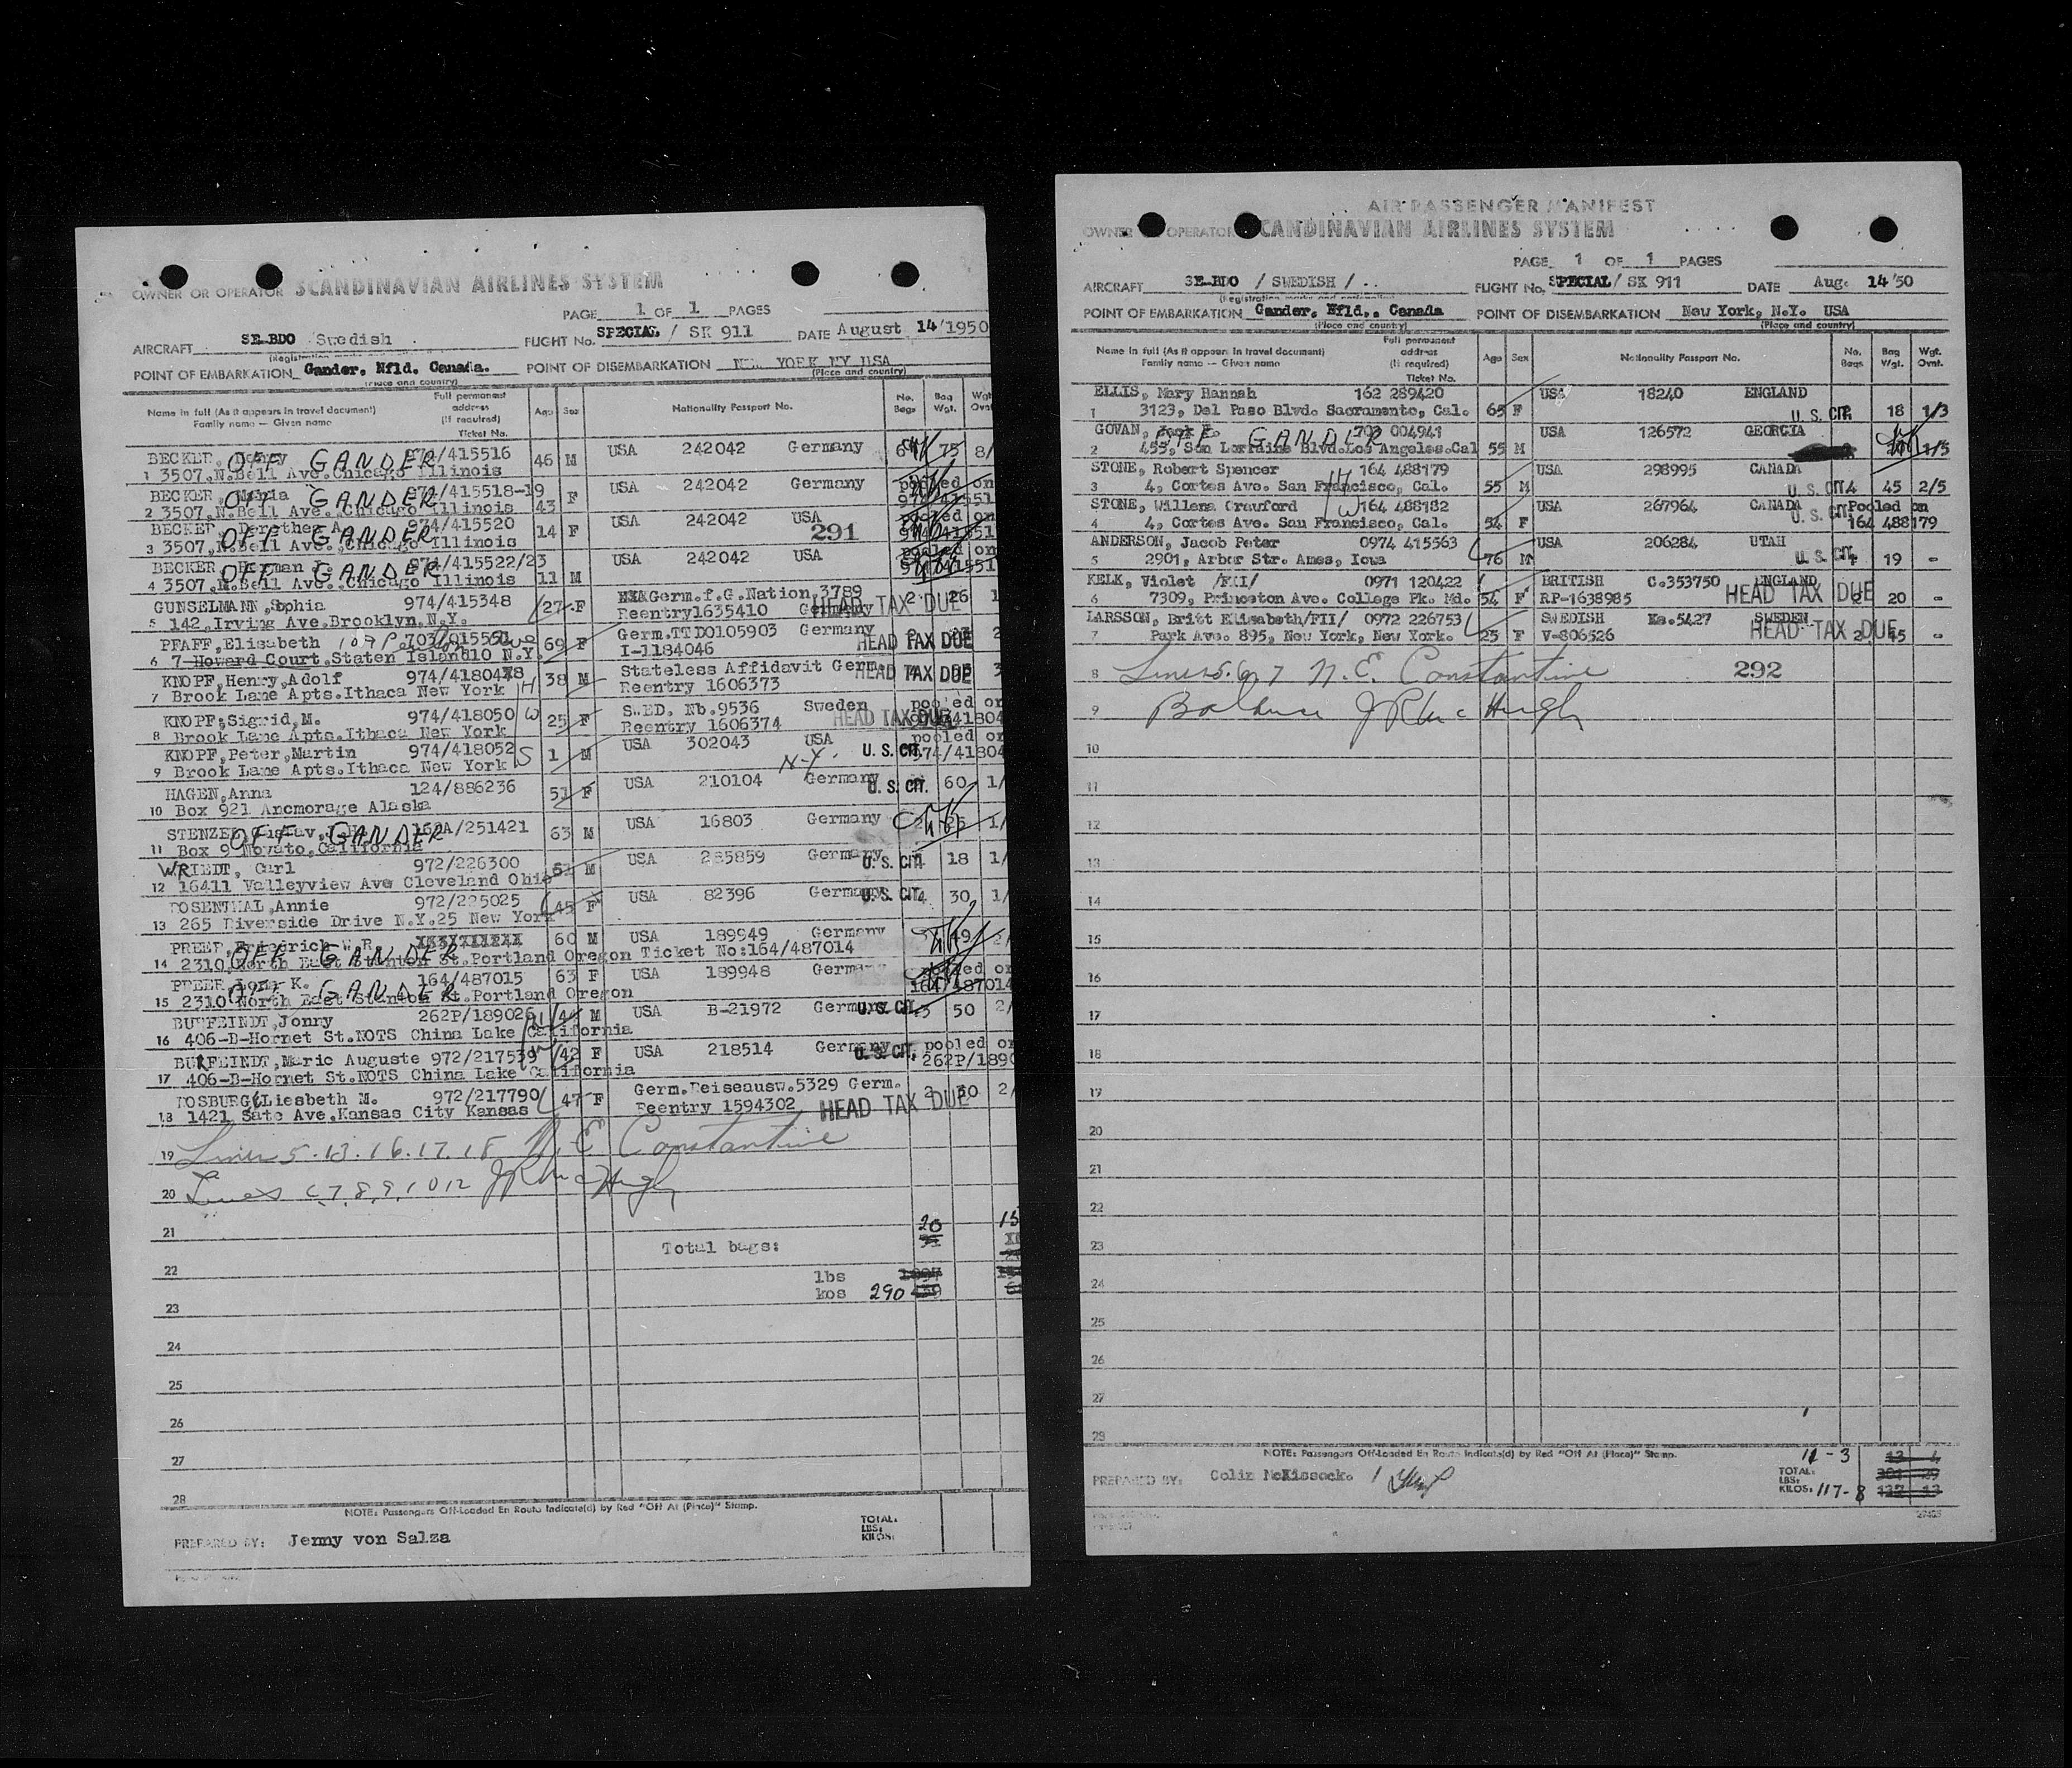 OWNER OR OPERATOR SCANDINAVIAN AIRLINES SYSTEM
PAGE 1 OF 1 PAGES
AIRCRAFT SE-BDO Swedish FLIGHT No. SPECIAL / SK 911 DATE August 14/1950
POINT OF EMBARKATION Gander, Nfld. Canada. POINT OF DISEMBARKATION NEW YORK NY USA
(Place and country) (Place and country)
Name in full (As it appears in travel document) Full permanent address (If required) Age Sex Nationality Passport No. No. Bags Bag Wgt.
Family name — Given name Ticket No.
BECKER, 974/415516 46 M USA 242042 Germany 75 8/
OFF GANDER
1 3507.N.Bell Ave.Chicago Illinois
BECKER, 974/415518-19 43 F USA 242042 Germany pooled on
OFF GANDER
2 3507.N.Bell Ave.Chicago Illinois
BECKER, Dorothea A. 974/415520 14 F USA 242042 USA pooled on
OFF GANDER 291
3 3507.N.Bell Ave.Chicago Illinois
BECKER 974/415522/23 11 M USA 242042 USA pooled on
OFF GANDER
4 3507.N.Bell Ave.Chicago Illinois
GUNSELMANN, Sophia 974/415348 27 F Germ.f.G.Nation.3789 2 26 1
5 142.Irving Ave.Brooklyn.N.Y. Reentry1635410 Germany HEAD TAX DUE
PFAFF, Elisabeth 69 F Germ.TTD0105903 Germany HEAD TAX DUE
6 7-Howard Court.Staten Island10 N.Y. I-1184046
KNOPF, Henry, Adolf 974/418048 H 38 M Stateless Affidavit Germ. HEAD TAX DUE
7 Brook Lane Apts.Ithaca New York Reentry 1606373
KNOPF, Sigrid, M. 974/418050 W 25 F SWED. Nb.9536 Sweden pooled on
8 Brook Lane Apts.Ithaca New York Reentry 1606374 HEAD TAX DUE
KNOPF, Peter, Martin 974/418052 S 1 M USA 302043 USA U. S. CIT. pooled on
9 Brook Lane Apts.Ithaca New York N-Y. 974/41804
HAGEN, Anna 124/886236 51 F USA 210104 Germany U. S. CIT. 60 1/
10 Box 921 Ancmorage Alaska
STENZEL 63 M USA 16803 Germany 25 1/
OFF GANDER
11 Box 9 Novato, California
WRIEDT, Carl 972/226300 M USA 285859 Germany U. S. CIT. 18 1/
12 16411 Valleyview Ave Cleveland Ohio
ROSENTHAL, Annie 972/225025 45 F USA 82396 Germany U. S. CIT. 4 30 1/
13 265 Riverside Drive N.Y.25 New York
PREER, Friedrich W.R. 60 M USA 189949 Germany 49
OFF GANDER
14 2310 North East Stanton St.Portland Oregon Ticket No:164/487014
PREER K. 164/487015 63 F USA 189948 Germany pooled on
OFF GANDER 164/487014
15 2310 North East Stanton St.Portland Oregon
BURFEINDT, Jonny 262P/189026 H 44 M USA B-21972 Germany U. S. CIT. 3 50 2/
16 406-B-Hornet St.NOTS China Lake California
BURFEINDT, Marie Auguste 972/217539 W 42 F USA 218514 Germany U. S. CIT. pooled on
17 406-B-Hornet St.NOTS China Lake California 262P/1890
VOSBURG, Liesbeth M. 972/217790 47 F Germ.Reiseausw.5329 Germ. 2 30 2/
18 1421 Sate Ave.Kansas City Kansas Reentry 1594302 HEAD TAX DUE
19 Lines 5.13.16.17.18 N. E Constantine
20 Lines 6,7,8,9,10,12 JR McHugh
21 Total bags: 20 13
22 lbs
kos 290
23
24
25
26
27
28
NOTE: Passengers Off-Loaded En Route Indicate(d) by Red "Off At (Place)" Stamp.
PREPARED BY: Jenny von Salza TOTAL: LBS: KILOS:
AIR PASSENGER MANIFEST
OWNER OR OPERATOR SCANDINAVIAN AIRLINES SYSTEM
PAGE 1 OF 1 PAGES
AIRCRAFT SE-BDO / SWEDISH / .. FLIGHT No. SPECIAL/ SK 911 DATE Aug. 14 '50
(Registration marks and nationality)
POINT OF EMBARKATION Gander, Nfld., Canada POINT OF DISEMBARKATION New York, N.Y. USA
(Place and country) (Place and country)
Name in full (As it appears in travel document) Full permanent address (If required) Age Sex Nationality Passport No. No. Bags Bag Wgt. Wgt. Ovnt.
Family name — Given name Ticket No.
ELLIS, Mary Hannah 162 289420 65 F USA 18240 ENGLAND
1 3123, Del Paso Blvd. Sacramento, Cal. U. S. CIT. 18 1/3
GOVAN, 703 004941 55 M USA 126572 GEORGIA
OFF GANDER
2 455, San Lorraine Blvd.Los Angeles.Cal 1/5
STONE, Robert Spencer 164 488179 55 M USA 298995 CANADA
3 4, Cortes Ave. San Francisco, Cal. H U. S. CIT. 4 45 2/5
STONE, Willena Crauford W 164 488182 54 F USA 267964 CANADA Pooled on
4 4, Cortes Ave. San Francisco, Cal. U. S. CIT. 164 488179
ANDERSON, Jacob Peter 0974 415563 76 M USA 206284 UTAH
5 2901, Arbor Str. Ames, Iowa U. S. CIT. 1 19 -
KELK, Violet /FII/ 0971 120422 54 F BRITISH C.353750 ENGLAND
6 7309, Princeton Ave. College Pk. Md. RP-1638985 HEAD TAX DUE 2 20 -
LARSSON, Britt Elisabeth/FII/ 0972 226753 25 F SWEDISH Ka.5427 SWEDEN
7 Park Ave. 895, New York, New York. V-806526 HEAD TAX DUE 2 15 -
8 Lines 5.6.7 N. E. Constantine 292
9 Balance JR McHugh
10
11
12
13
14
15
16
17
18
19
20
21
22
23
24
25
26
27
28
NOTE: Passengers Off-Loaded En Route Indicate(d) by Red "Off At (Place)" Stamp.
PREPARED BY: Colin McKissock. TOTAL: 11 - 3
LBS:
KILOS: 117-8